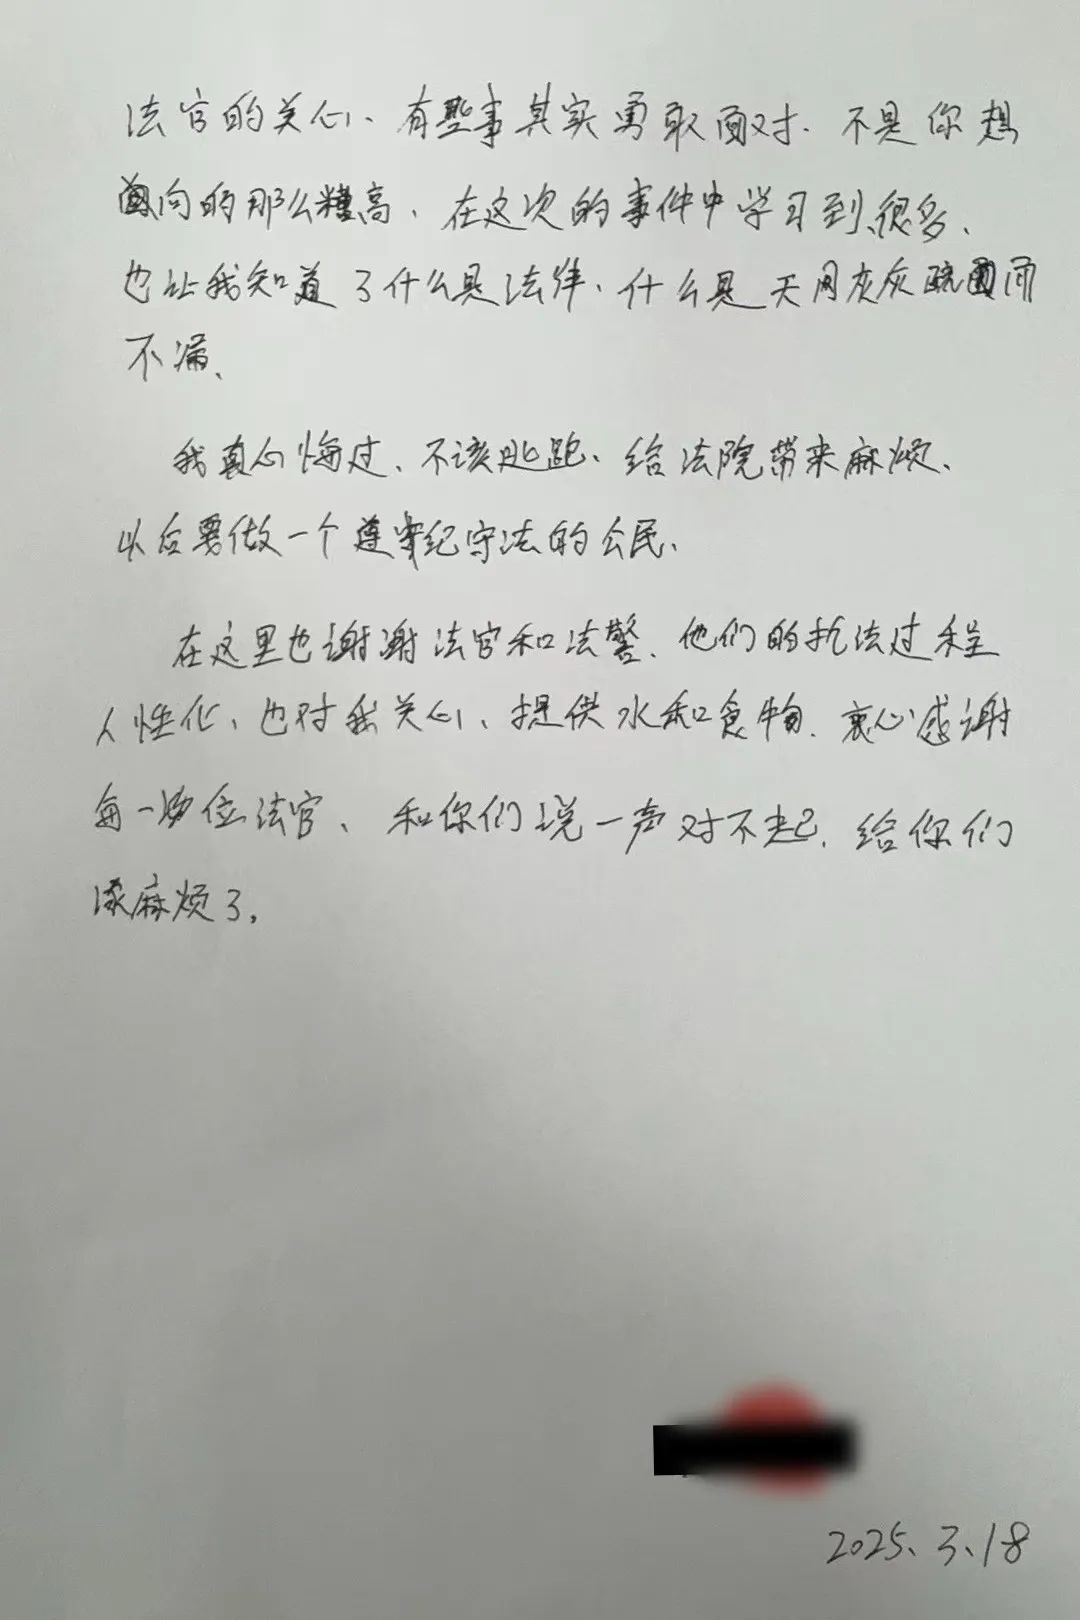 法官的关心、有些事其实勇敢面对、不是你想
向的那么糟高、在这次的事件中学习到很多、
也让我知道了什么是法律、什么是天网灰灰疏而
不漏、
我真心悔过、不该逃跑、给法院带来麻烦、
以后要做一个遵纪守法的公民、
在这里也谢谢法官和法警、他们的执法过程
人性化、也对我关心、提供水和食物、衷心感谢
每一位法官、和你们说一声对不起、给你们
添麻烦了。
2025、3、18